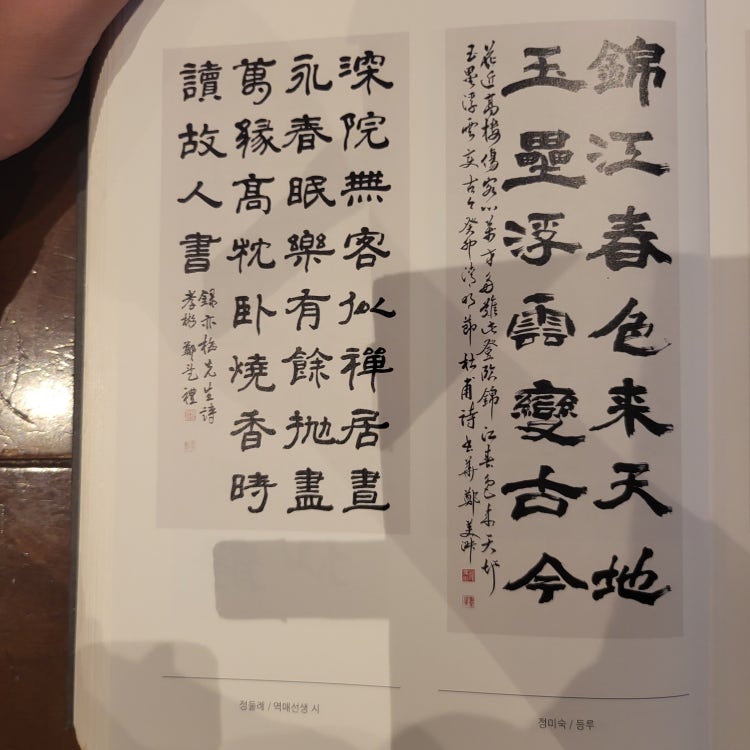 錦江春色来天地
玉壘浮雲變古今
花近高樓傷客心萬方多難此登臨錦江春色来天地
玉壘浮雲变古今癸卯清明節杜甫詩 華鄭美淑
정미숙 / 등루
深院無客似禪居晝
永春眠樂有餘抛盡
萬緣髙枕臥燒香時
讀故人書
錄亦梅先生詩
鄭乭禮
정돌례 / 역매선생 시